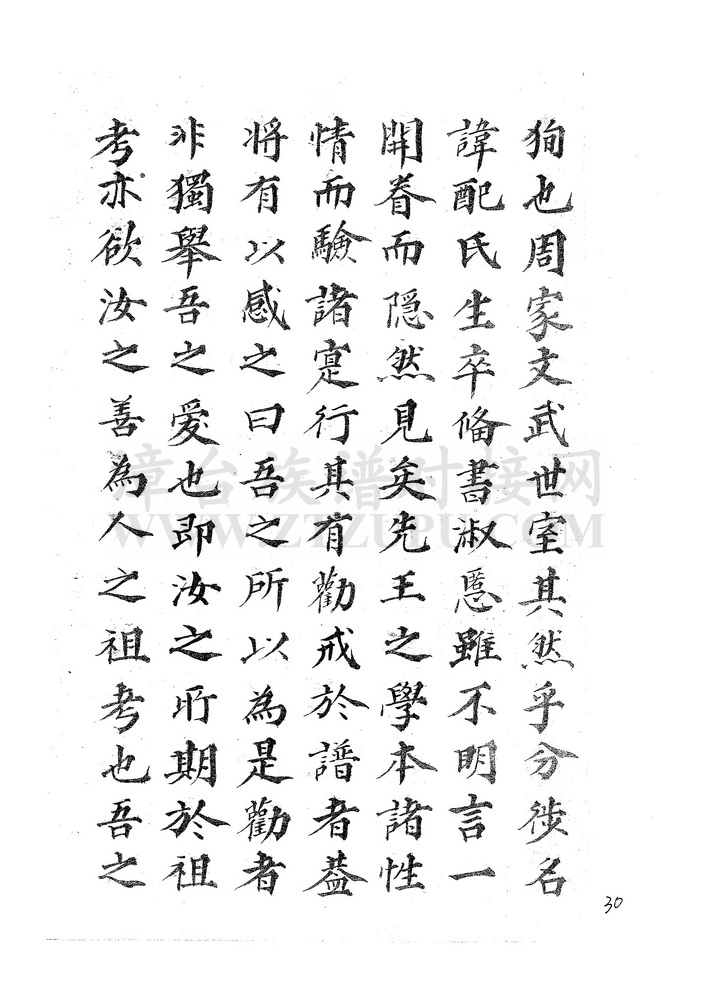 狥也周家文武世室其然乎分涉名
諱配氏生卒俻書淑慝雖不明言一
開眷而隱然見矣先王之學本諸性
情而驗諸寔行其有勸戒於譜者葢
將有以感之曰吾之所以為是勸者
非獨舉吾之愛也即汝之所期於祖
考亦欲汝之善為人之祖考也吾之
30
漳台族谱对接网
WWW.ZTZUPU.COM